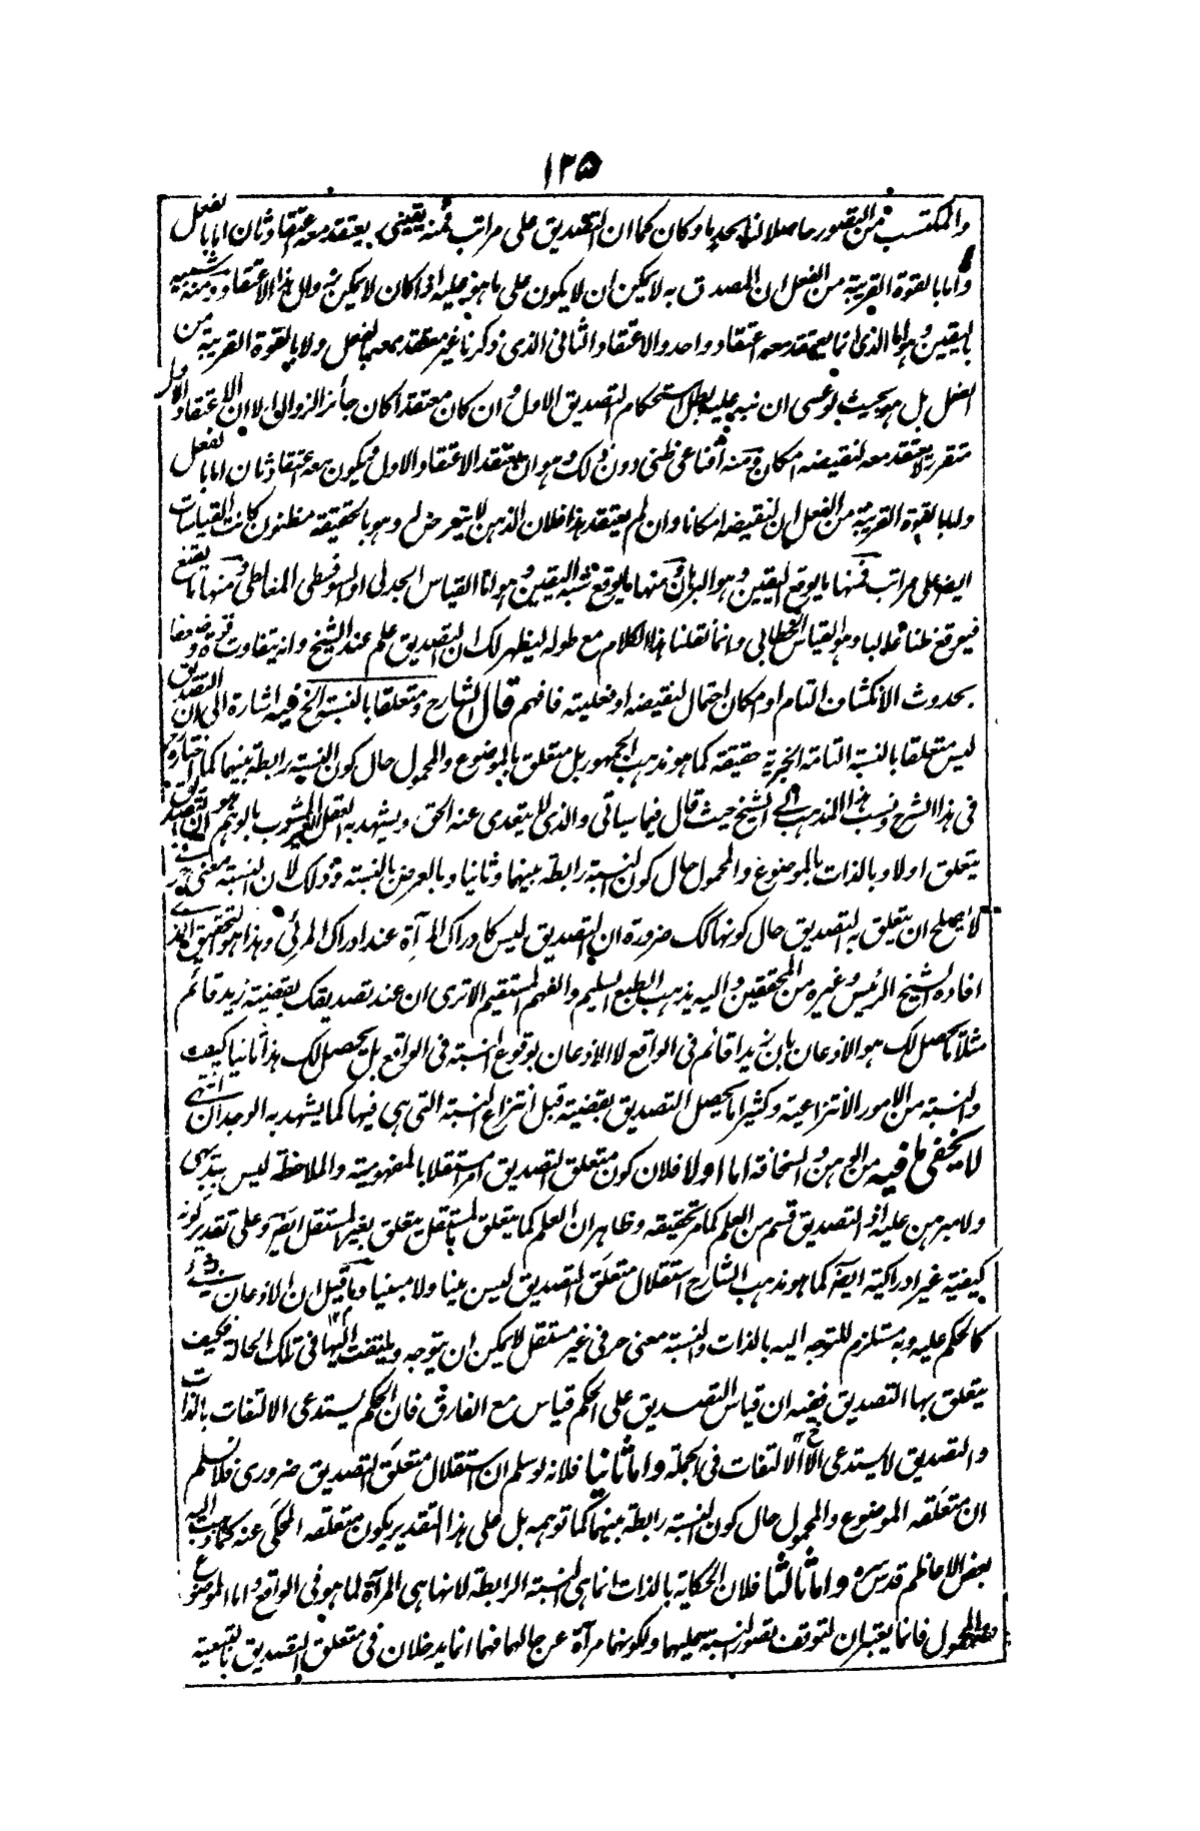 ١٣٥
والمكتسب من التصور حاصلا لنا بحد ما وكان كما ان التصديق على مراتب فمنه يقينى يعتقد معه اعتقاد ثان اما بالفعل
واما بالقوة القريبة من الفعل ان المصدق به لا يمكن ان لا يكون على ما هو عليه اذا كان لا يمكن زوال هذا الاعتقاد ومنه شبيه
باليقين وهو اما الذى انما يعتقد معه اعتقاد واحد والاعتقاد الثانى الذى ذكرنا غير معتقد معه بالفعل ولا بالقوة القريبة من
الفعل بل هو بحيث لو عسى ان نبه عليه بطل استحكام التصديق الاول وان كان معتقدا كان جائز الزوال الا ان الاعتقاد الاول
متقرر لا يعتقد معه لنقيضه امكان ومنه اقناعى ظنى دون ذلك وهو ان يعتقد الاعتقاد الاول ويكون معه اعتقاد ثان اما بالفعل
واما بالقوة القريبة من الفعل ان لنقيضه امكانا وان لم يعتقد هذا فلان الذهن لا يتعرض له وهو بالحقيقة مظنون كانت القياسات
ايضا على مراتب فمنها ما يوقع اليقين وهو البرهان ومنها ما يوقع شبه اليقين وهو اما القياس الجدلى او السوفسطى المغالطى ومنها ما يقنع
فيوقع ظنا غالبا وهو القياس الخطابى وانما نقلنا هذا الكلام مع طوله ليظهر لك ان التصديق علم عند الشيخ وانه يتفاوت قوة وضعفا
بحدوث الانكشاف التام او امكان احتمال لنقيضه او فعليته فافهم قال الشارح ومتعلقا بالنسبة الخ فيه اشارة الى ان التصديق
ليس متعلقا بالنسبة التامة الخبرية حقيقة كما هو مذهب الجمهور بل متعلق بالموضوع والمحمول حال كون النسبة رابطة بينهما كما اختاره
فى هذا الشرح ونسب هذا المذهب الى الشيخ حيث قال فيما سيأتى والذى لا يتعدى عنه الحق ويشهد به العقل الغير المشوب بالوهم هو ان التصديق
يتعلق اولا وبالذات بالموضوع والمحمول حال كون النسبة رابطة بينهما وثانيا وبالعرض بالنسبة وذلك لان النسبة معنى
لا يصلح ان يتعلق به التصديق حال كونها كك ضرورة ان التصديق ليس كادراك المرآة عند ادراك المرئى وهذا هو التحقيق الذى
افاده الشيخ الرئيس وغيره من المحققين واليه يذهب الطبع السليم والفهم المستقيم الا ترى ان عند تصديقك بقضية زيد قائم
مثلا ما يحصل لك هو الاذعان بان زيدا قائم فى الواقع لا الاذعان بوقوع النسبة فى الواقع بل يحصل لك هذا ثانيا كيف
والنسبة من الامور الانتزاعية وكثيرا ما يحصل التصديق بقضية قبل انتزاع النسبة التى هى فيها كما يشهد به الوجدان انتهى
لا يخفى ما فيه من الوهن والسخافة اما اولا فلان كون متعلق التصديق امرا مستقلا بالمفهومية والملاحظة ليس ببديهى
ولا مبرهن عليه اذ التصديق قسم من العلم كما مر تحقيقه وظاهر ان العلم كما يتعلق بالمستقل يتعلق بغير المستقل ايضا وعلى تقدير كونه
كيفية غير ادراكية ايضا كما هو مذهب الشارح استقلال متعلق التصديق ليس بينا ولا مبينا وما قيل ان الاذعان
كالحكم عليه وبه مستلزم للتوجه اليه بالذات والنسبة معنى حرفى غير مستقل لا يمكن ان يتوجه ويلتفت اليها فى تلك الحالة فكيف
يتعلق بها التصديق ففيه ان قياس التصديق على الحكم قياس مع الفارق فان الحكم يستدعى الالتفات بالذات
والتصديق لا يستدعى الا الالتفات فى الجملة واما ثانيا فلانه لو سلم ان استقلال متعلق التصديق ضرورى فلا نسلم
ان متعلقه الموضوع والمحمول حال كون النسبة رابطة بينهما كما توهمه بل على هذا التقدير يكون متعلقه المحكى عنه كما ذهب اليه
بعض الاعاظم قدس سره واما ثالثا فلان الحكاية بالذات انما هى النسبة الرابطة لانها هى المرآة لما هو فى الواقع واما الموضوع
والمحمول فانما يعتبران لتوقف تصور النسبة عليهما ولكونهما مرآة عن حالهما فهما انما يدخلان فى متعلق التصديق بالتبعية